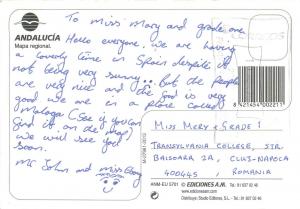 To Miss Mary and grade one
ANDALUCÍA
Mapa regional.
Hello everyone. We are having
a lovely time in Spain despite it
not being very sunny... But the people
are very nice and the food is very
good. We are in a place called
Malaga (See if you can
find it on the map)
We will see you
soon.
Mr John and Miss
8 421454 002211
MISS MERY & GRADE 1
TRANSYLVANIA COLLEGE, STR.
BAISOARA 2A, CLUJ-NAPOCA
400645, ROMANIA
ANM-EU 5701 © EDICIONES A.M. Tel. 91 637 02 46
www.edicionesam.com
Distribuye: Studio Ediciones, S.L. - Tel. 91 637 02 46